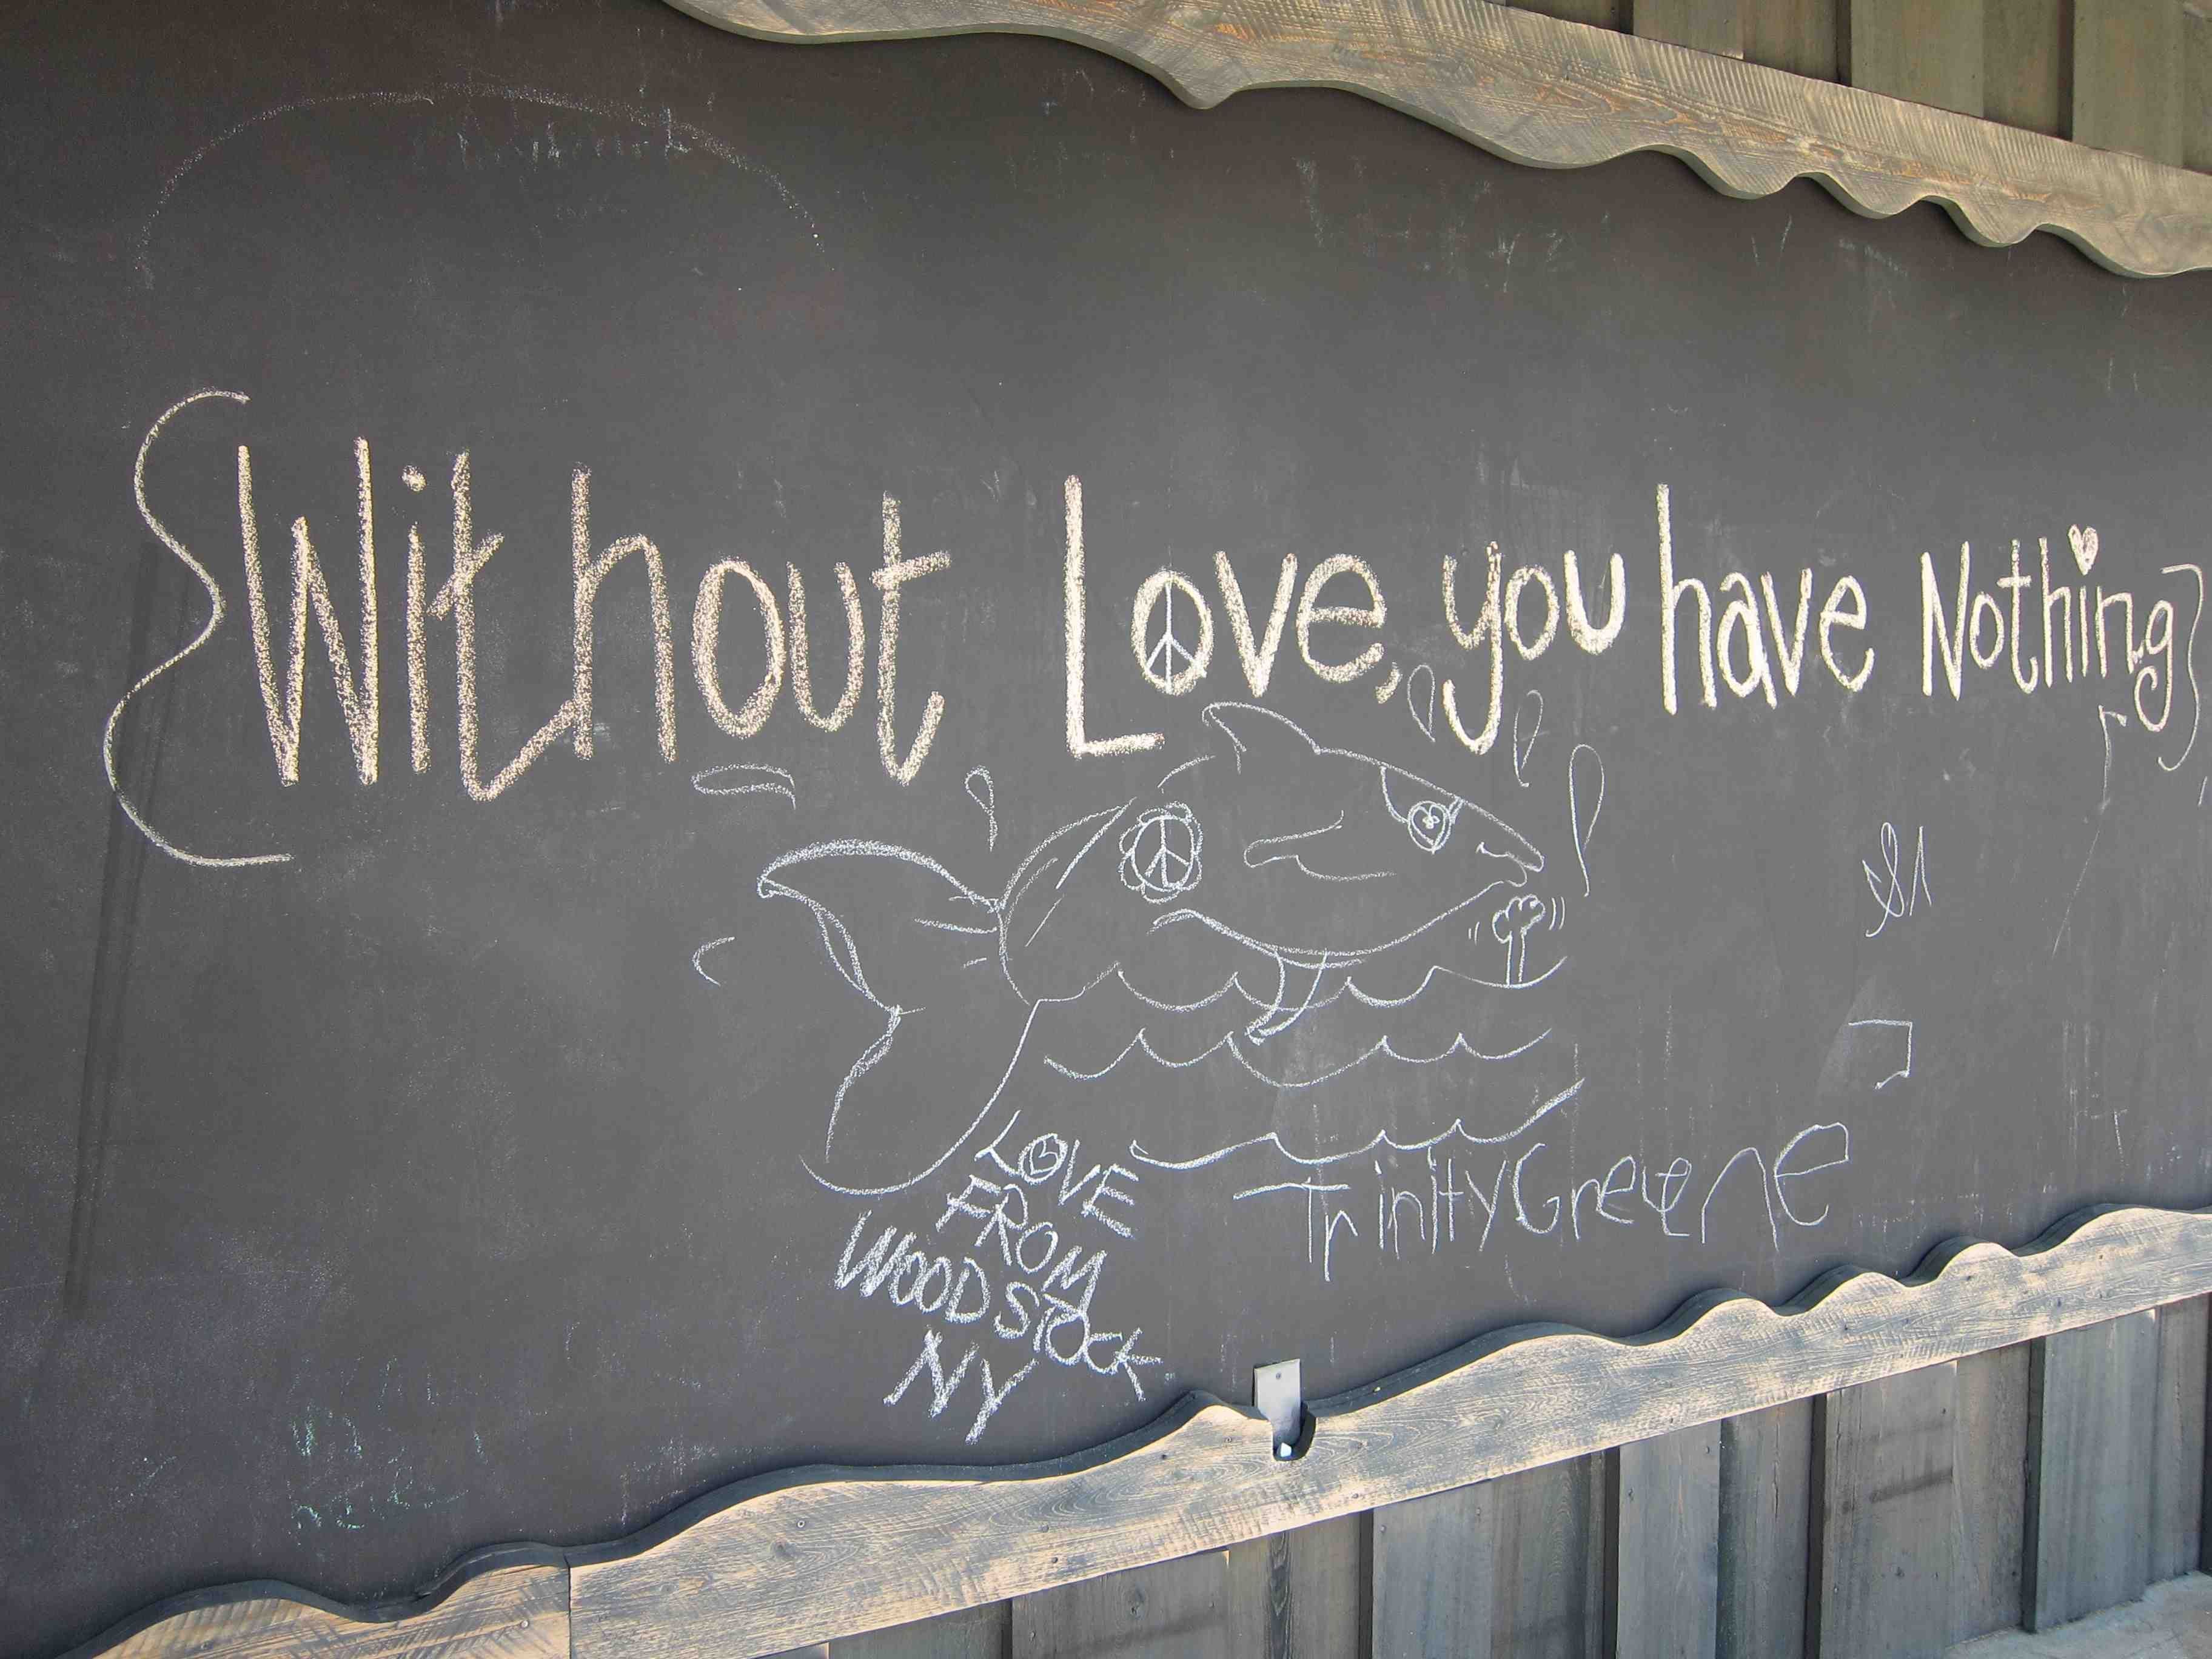 {Without Love, you have Nothing}
LOVE
FROM
WOODSTOCK
NY
Trinity Greene